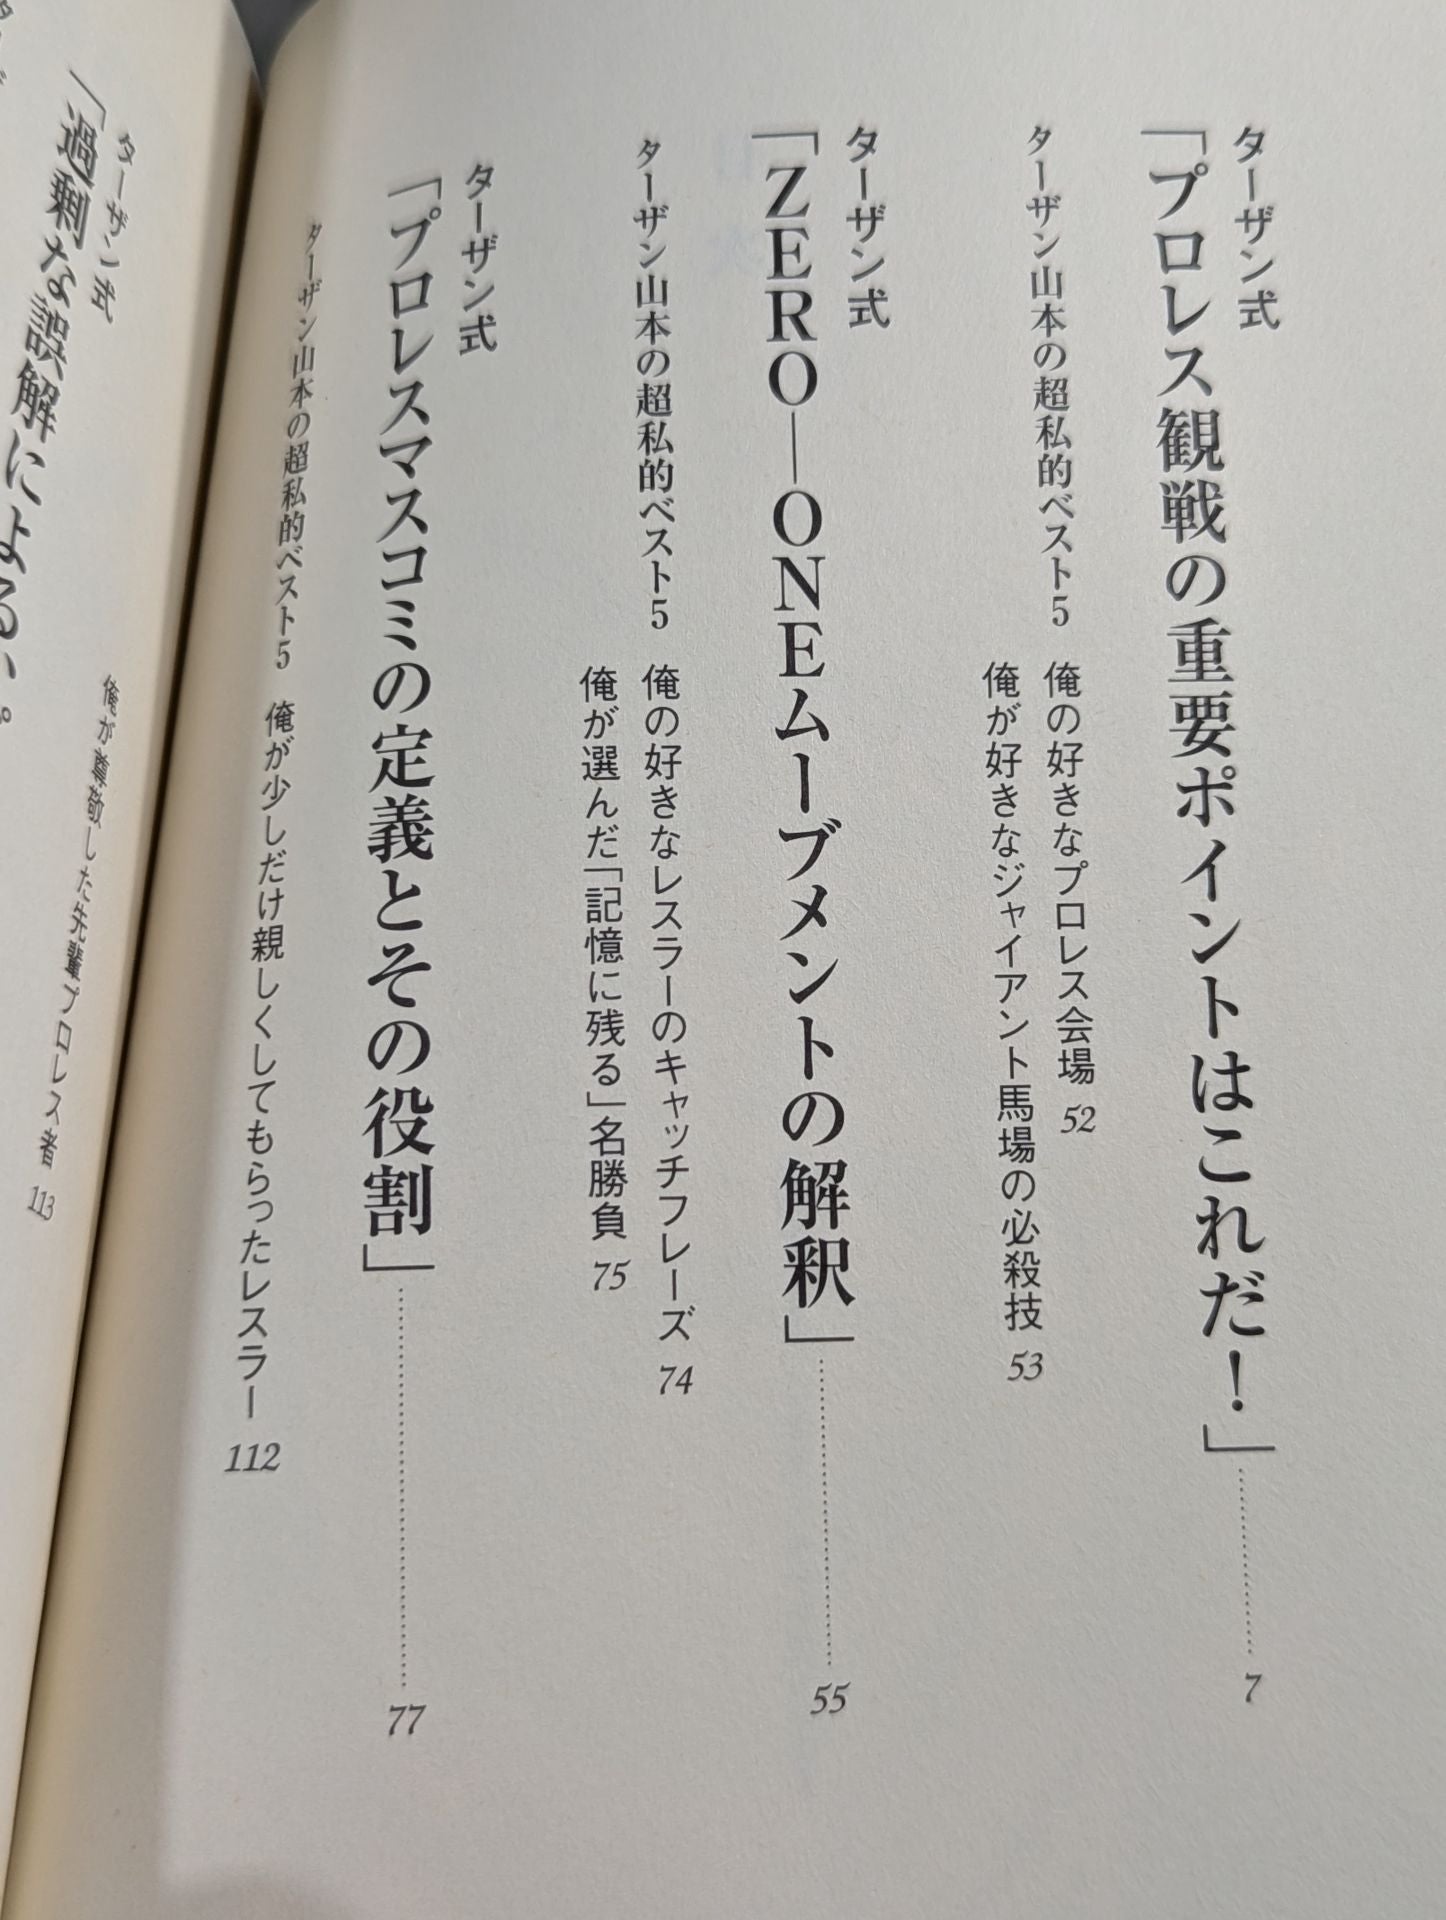 ターザン式
「プロレス観戦の重要ポイントはこれだ！」 7
ターザン山本の超私的ベスト5
俺の好きなプロレス会場 52
俺が好きなジャイアント馬場の必殺技 53
ターザン式
「ZERO―ONEムーブメントの解釈」 55
ターザン山本の超私的ベスト5
俺の好きなレスラーのキャッチフレーズ 74
俺が選んだ「記憶に残る」名勝負 75
ターザン式
「プロレスマスコミの定義とその役割」 77
ターザン山本の超私的ベスト5
俺が少しだけ親しくしてもらったレスラー 112
俺が尊敬した先輩プロレス者 113
ターザン式
「過剰な誤解による、